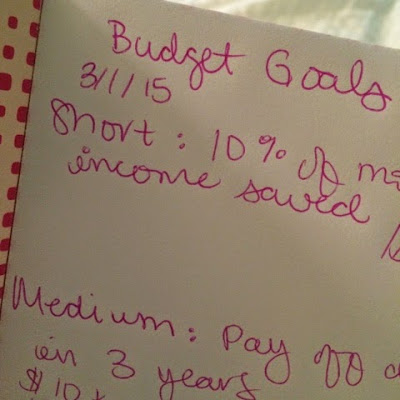 Budget Goals
3/1/15
Short: 10% of
income saved
Medium: Pay off
in 3 years
$10